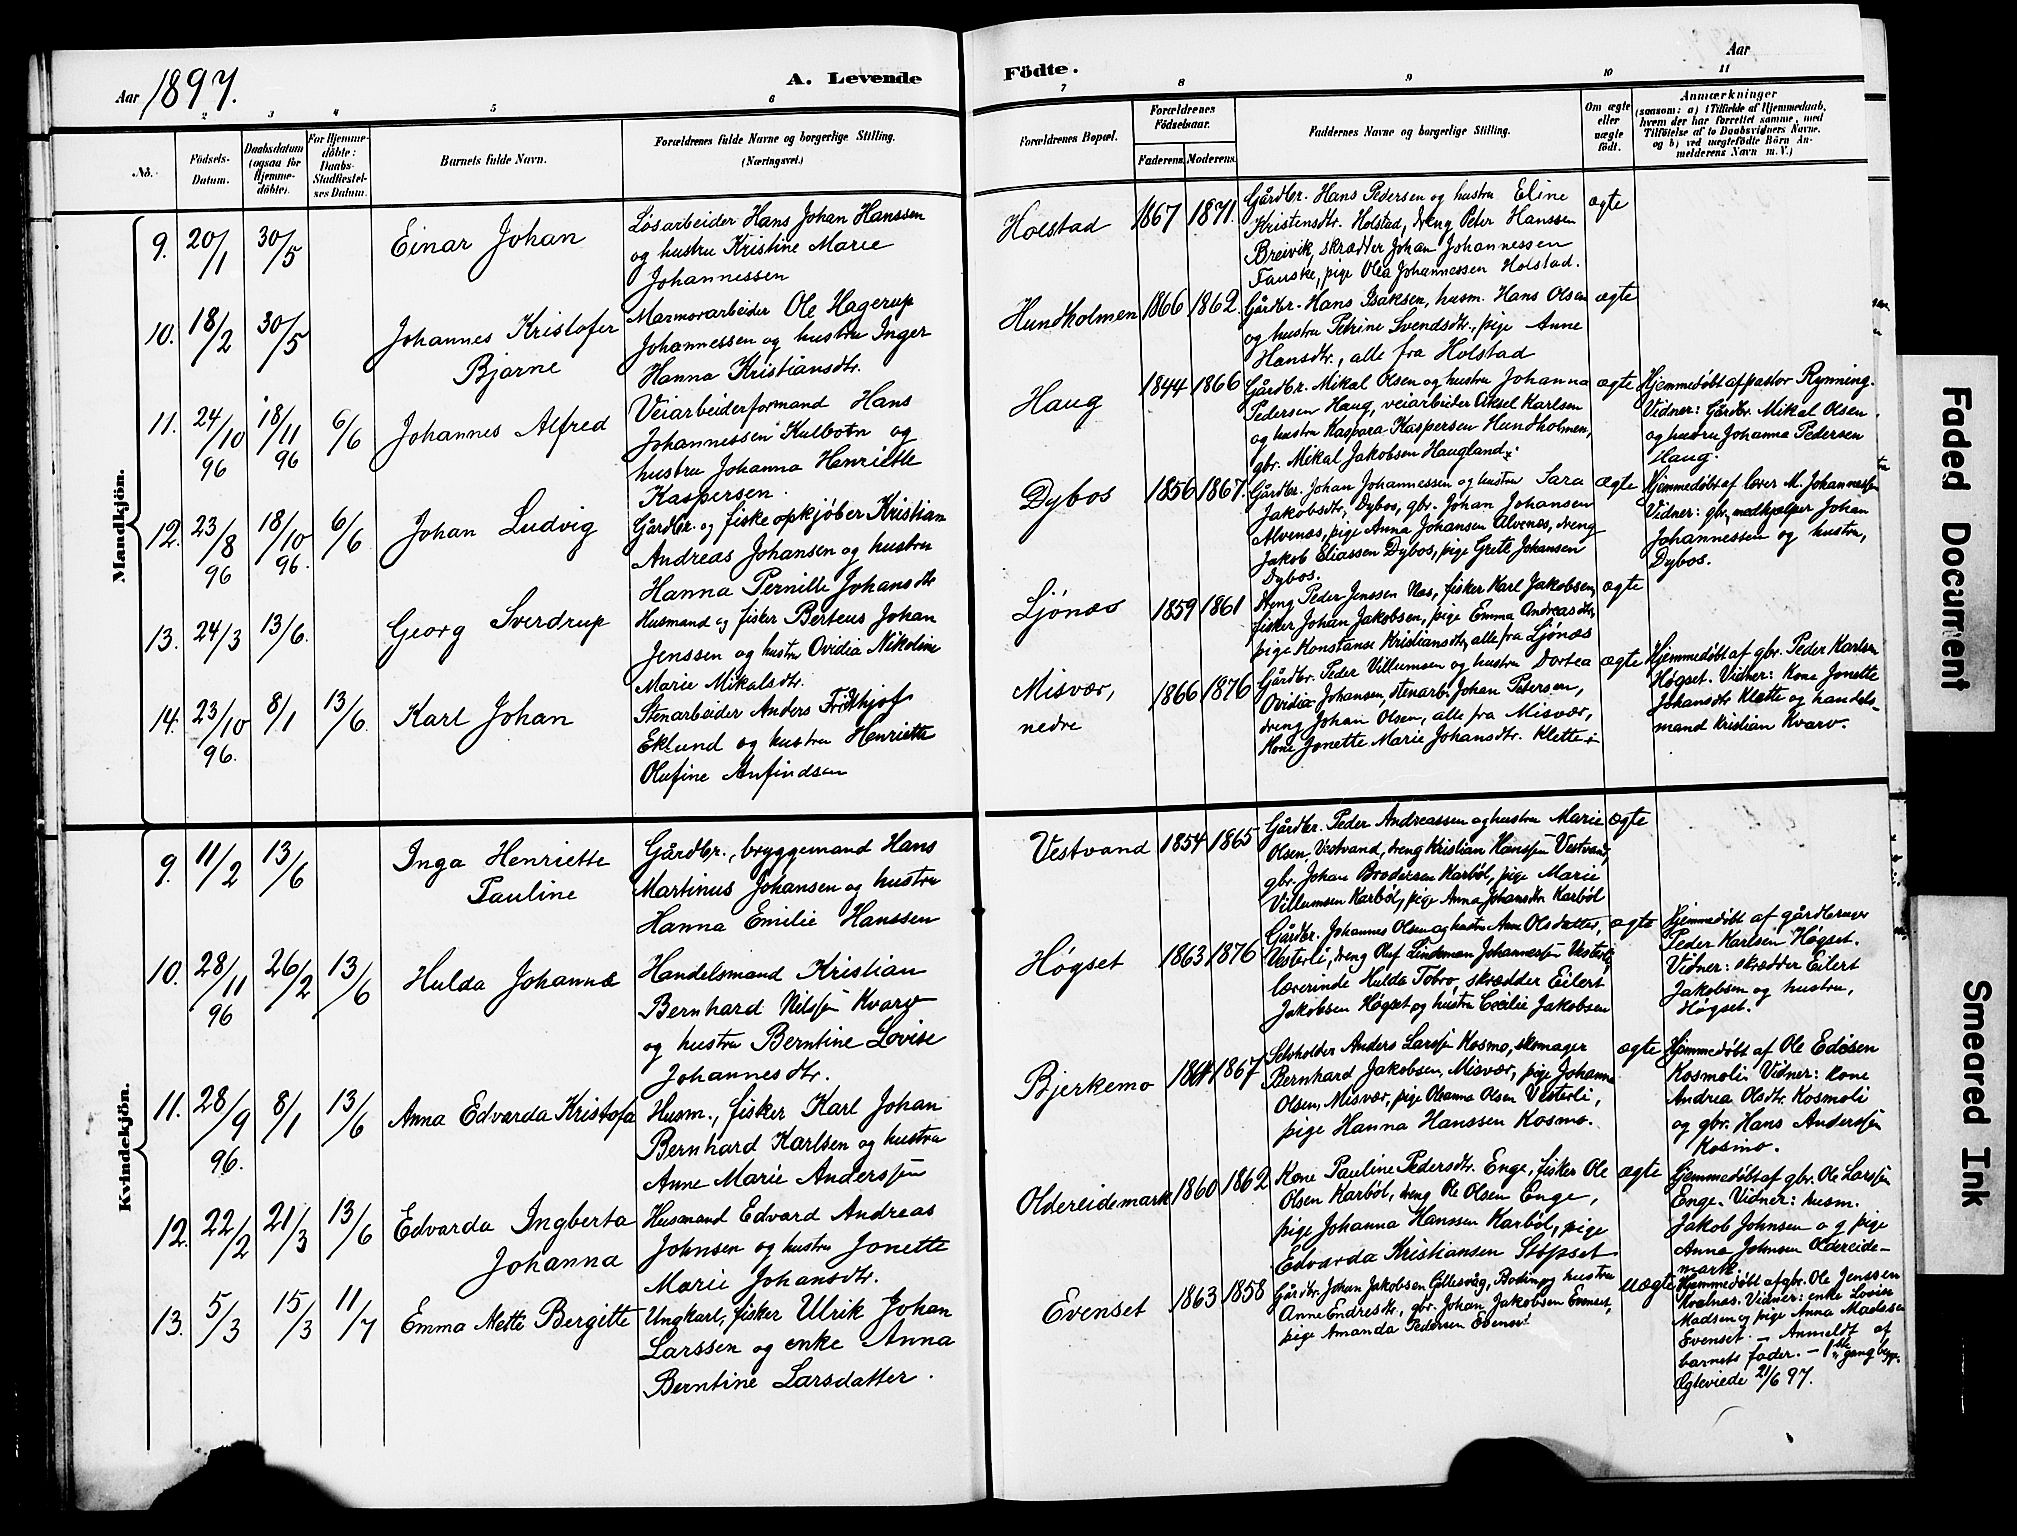 Aar 1897.
A. Levende
Födte.
Aar
2 3 4 5 6 7 8 9 10 11
No.
Födsels-
Datum.
Daabsdatum
(ogsaa for
Hjemme-
döbte).
For Hjemme-
döbte:
Daabs-
Stadfæstel-
ses Datum.
Barnets fulde Navn.
Forældrenes fulde Navne og borgerlige Stilling.
(Næringsvei.)
Forældrenes Bopæl.
Forældrenes
Födselsaar.
Faderens. Moderens.
Faddernes Navne og borgerlige Stilling.
Om ægte
eller
uægte
født.
Anmærkninger
(saasom: a) i Tilfælde af Hjemmedaab,
hvem der har forrettet samme, med
Tilföielse af to Daabsvidners Navne,
og b) ved uægtefödte Börn An-
melderens Navn m. V.)
Mandkjön.
9. 20/1 30/5
Einar Johan
Løsarbeider Hans Johan Hanssen
og hustru Kristine Marie
Johannessen
Holstad 1867 1871.
Gårdbr. Hans Pedersen og hustru Eline
Kristensdtr. Holstad, dreng Peter Hanssen
Breivik, skrædder Johan Johannessen
Fauske, pige Olea Johannessen Holstad.
ægte
10. 18/2 30/5
Johannes Kristofer
Bjarne
Marmorarbeider Ole Hagerup
Johannessen og hustru Inger
Hanna Kristiansdtr.
Hundholmen 1866 1862.
Gårdbr. Hans Isaksen, husm. Hans Olsen
og hustru Petrine Svendsdtr., pige Anne
Hansdtr., alle fra Holstad
ægte
11. 24/10 96 18/11 96 6/6
Johannes Alfred
Veiarbeiderformand Hans
Johannessen Kulbotn og
hustru Johanna Henriette
Kaspersen.
Haug 1844 1866
Gårdbr. Mikal Olsen og hustru Johanna
Pedersen Haug, veiarbeider Aksel Karlsen
og hustru Kaspara Kaspersen Hundholmen,
gbr. Mikal Jakobsen Haugland.
ægte
Hjemmedøbt af pastor Rynning.
Vidner: Gårdbr. Mikal Olsen
og hustru Johanna Pedersen
Haug.
12. 23/8 96 18/10 96. 6/6
Johan Ludvig
Gårdbr. og fiskeopkjøber Kristian
Andreas Johansen og hustru
Hanna Pernille Johansdtr
Dybos 1856 1867.
Gårdbr. Johan Johannessen og hustru Sara
Jakobsdtr., Dybos, gbr. Johan Johansen
Alvenæs, pige Anna Johansen Alvenæs, dreng
Jakob Eliassen Dybos, pige Grete Johansen
Dybos.
ægte
Hjemmedøbt af lærer M. Johannessen
Vidner: gbr., medhjælper Johan
Johannessen og hustru,
Dybos.
13. 24/3 13/6.
Georg Sverdrup
Husmand og fisker Berteus Johan
Jenssen og hustru Ovidia Nikoline
Marie Mikalsdtr.
Ljønæs 1859 1861
Dreng Peder Jenssen Næs, fisker Karl Jakobsen,
fisker Johan Jakobsen, pige Emma Andreasdtr,
pige Konstanse Kristiansdtr, alle fra Ljønæs
ægte
14. 23/10 96. 8/1 13/6.
Karl Johan
Stenarbeider Anders Fridthjof
Eklund og hustru Henriette
Olufine Anfindsen
Misvær,
nedre
1866 1876
Gårdbr. Peder Villumsen og hustru Dortea
Ovidia Johansen, stenarb. Johan Petersen,
dreng Johan Olsen, alle fra Misvær,
Kone Jonette Marie Johansdtr. Klette
ægte
Hjemmedøbt af gbr. Peder Karlsen
Høgset. Vidner: Kone Jonette
Johansdtr Klette og handels-
mand Kristian Kvarv.
Kvindekjön.
9. 11/2 13/6
Inga Henriette
Pauline
Gårdbr., bryggemand Hans
Martinus Johansen og hustru
Hanna Emilie Hanssen
Vestvand 1854 1865
Gårdbr. Peder Andreassen og hustru Marie
Olsen, Vestvand, dreng Kristian Hanssen Vestvand,
gbr. Johan Brodersen Karbøl, pige Marie
Villumsen Karbøl, pige Anna Johansdtr Karbøl
ægte
10. 28/11 96 26/2 13/6
Hulda Johanna
Handelsmand Kristian
Bernhard Nilssen Kvarv
og hustru Berntine Lovise
Johannesdtr.
Høgset 1863 1876
Gårdbr. Johannes Olsen og hustru Ane Olsdatter,
Vesterli, dreng Oluf Lindeman Johannessen Vesterli,
lærerinde Hulda Tobro, skrædder Eilert
Jakobsen Høgset og hustru Cecilie Jakobsen
ægte
Hjemmedøbt af gårdbruger
Peder Karlsen Høgset.
Vidner: skrædder Eilert
Jakobsen og hustru,
Høgset.
11. 28/9 96. 8/1 13/6
Anna Edvarda Kristofa
Husm., fisker Karl Johan
Bernhard Karlsen og hustru
Anne Marie Anderssen
Bjerkemo 1867
Selvholder Anders Larssen Kosmo, skomager
Bernhard Jakobsen, Misvær, pige Johanna
Olsen, Misvær, pige Olsanna Olsen Vesterli,
pige Hanna Hanssen Kosmo.
ægte
Hjemmedøbt af Ole Edisen
Kosmoli Vidner: Kone
Andrea Olsdtr. Kosmoli
og gbr. Hans Anderssen
Kosmo.
12. 22/2 21/3 13/6
Edvarda Ingberta
Johanna
Husmand Edvard Andreas
Johnsen og hustru Jonette
Marie Johansdtr.
Oldereidemark 1860 1862
Kone Pauline Pedersdtr. Enge, fisker Ole
Olsen Karbøl, dreng Ole Olsen Enge,
pige Johanna Hanssen Karbøl, pige
Edvarda Kristiansen Støpset
ægte
Hjemmedøbt af gbr. Ole Larssen
Enge. Vidner: husm.
Jakob Johnsen og pige
Anna Johnsen Oldereide-
mark
13. 5/3 15/3 11/7
Emma Mette Bergitte
Ungkarl, fisker Ulrik Johan
Larssen og enke Anna
Berntine Larsdatter.
Evenset 1863 1858
Gårdbr Johan Jakobsen Gillesvåg, Bodin og hustru
Anne Endresdtr, gbr. Johan Jakobsen Evenset,
pige Amanda Pedersen Evenset
uægte
Hjemmedøbt af gbr. Ole Jenssen
Kvalnæs. Vidner: enke Lovise
Madsen og pige Anna Madsen
Evenset. – Anmeldt af
barnets fader. – 1ste gang begge.
Ægteviede 21/6 97.
Faded Document
Smeared Ink